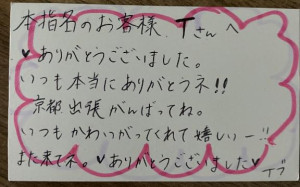 本指名のお客様、Tさんへ
♥ありがとうございました。
いつも本当にありがとうネ!!
京都出張がんばってね。
いつもかわいがってくれて嬉しぃー!!
また来てネ。♥ありがとうございました♥